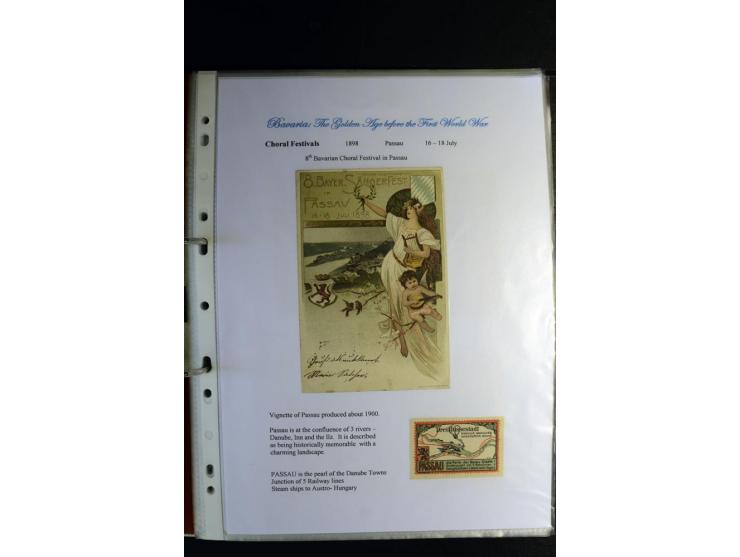 Bavaria: The Golden Age before the First World War
Choral Festivals 1898 Passau 16 – 18 July
8th Bavarian Choral Festival in Passau
8. BAYER. SÄNGERFEST
IN
PASSAU
16-18. JULI 1898
Vignette of Passau produced about 1900.
Passau is at the confluence of 3 rivers –
Danube, Inn and the Ilz. It is described
as being historically memorable with a
charming landscape.
Dreiflüssestadt
PASSAU
PASSAU is the pearl of the Danube Towns
Junction of 5 Railway lines
Steam ships to Austro- Hungary